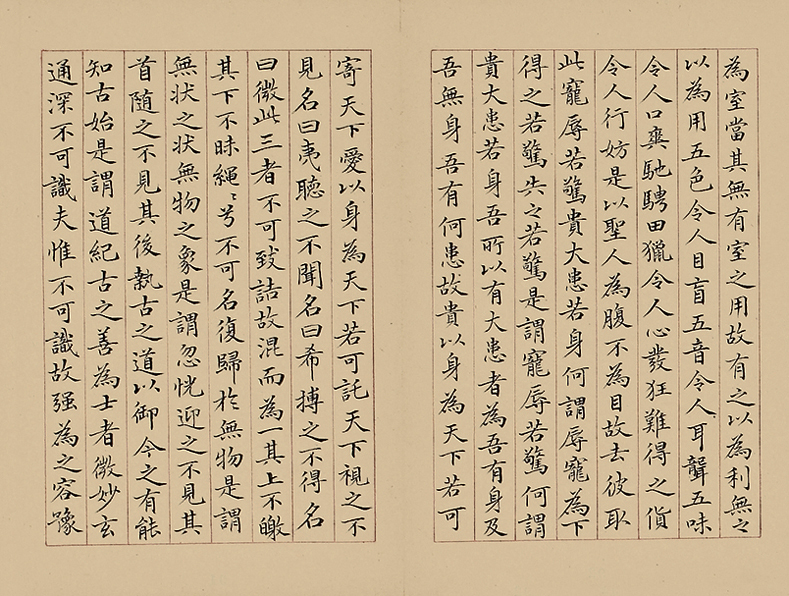 為室當其無有室之用故有之以為利無之
以為用五色令人目盲五音令人耳聾五味
令人口爽馳騁田獵令人心發狂難得之貨
令人行妨是以聖人為腹不為目故去彼取
此寵辱若驚貴大患若身何謂辱寵為下
得之若驚失之若驚是謂寵辱若驚何謂
貴大患若身吾所以有大患者為吾有身及
吾無身吾有何患故貴以身為天下若可
寄天下愛以身為天下若可託天下視之不
見名曰夷聽之不聞名曰希搏之不得名
曰微此三者不可致詰故混而為一其上不皦
其下不昧繩〻兮不可名復歸於無物是謂
無状之状無物之象是謂忽恍迎之不見其
首隨之不見其後執古之道以御今之有能
知古始是謂道紀古之善為士者微妙玄
通深不可識夫惟不可識故强為之容豫